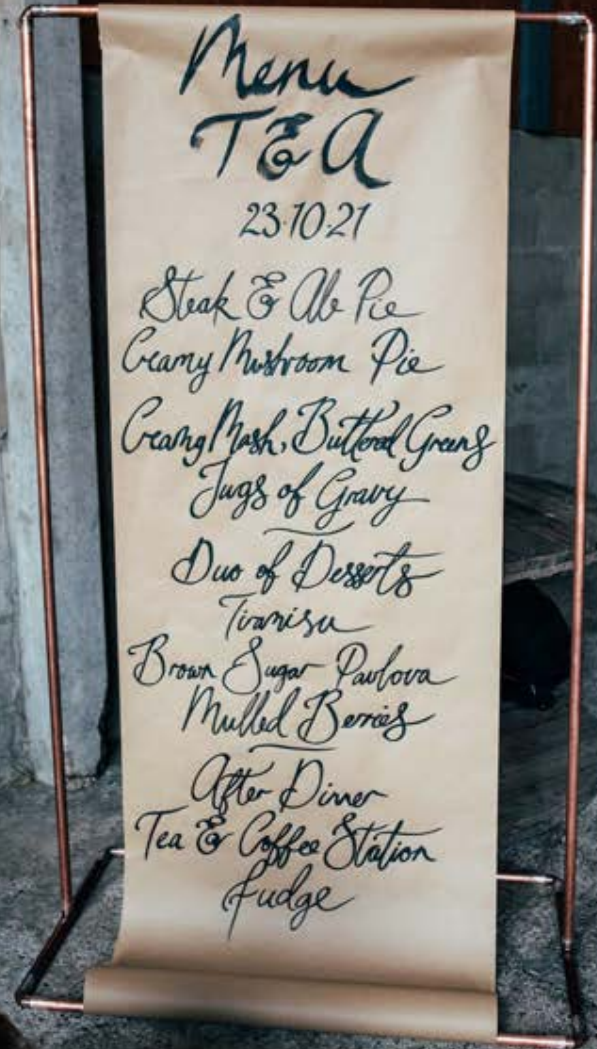 Menu
T & A
23·10·21
Steak & Ale Pie
Creamy Mushroom Pie
Creamy Mash, Buttered Greens
Jugs of Gravy
Duo of Desserts
Tiramisu
Brown Sugar Pavlova
Mulled Berries
After Dinner
Tea & Coffee Station
Fudge